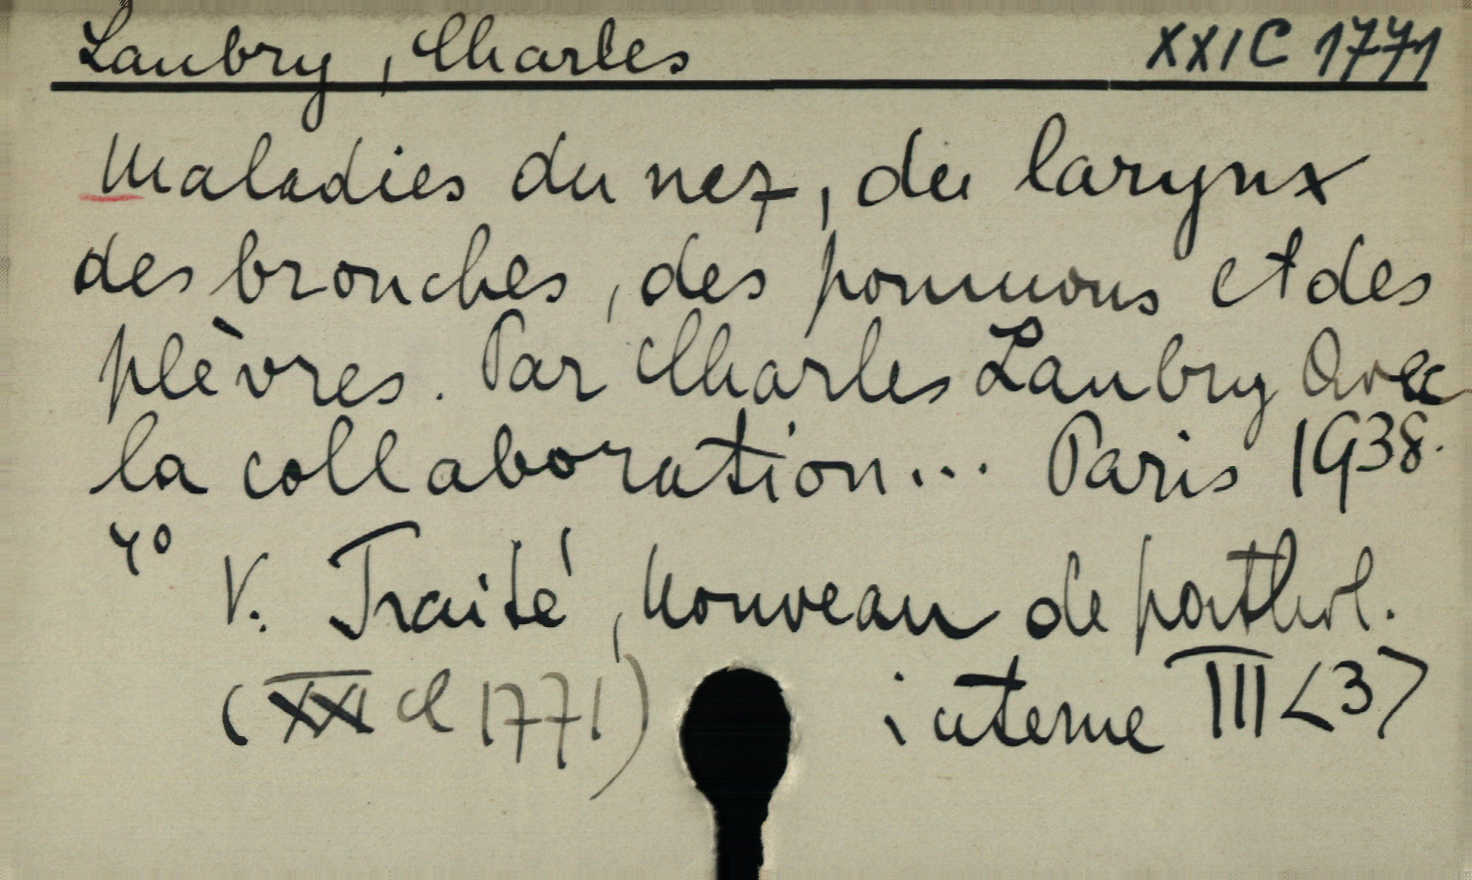 Laubry, Charles XXI C 1771
Maladies du nez, du larynx
des bronches, des poumons et des
plèvres. Par Charles Laubry Avec
la collaboration... Paris 1938.
4°
V. Traité, Nouveau de pathol.
(XXI C 1771) interne III <3>